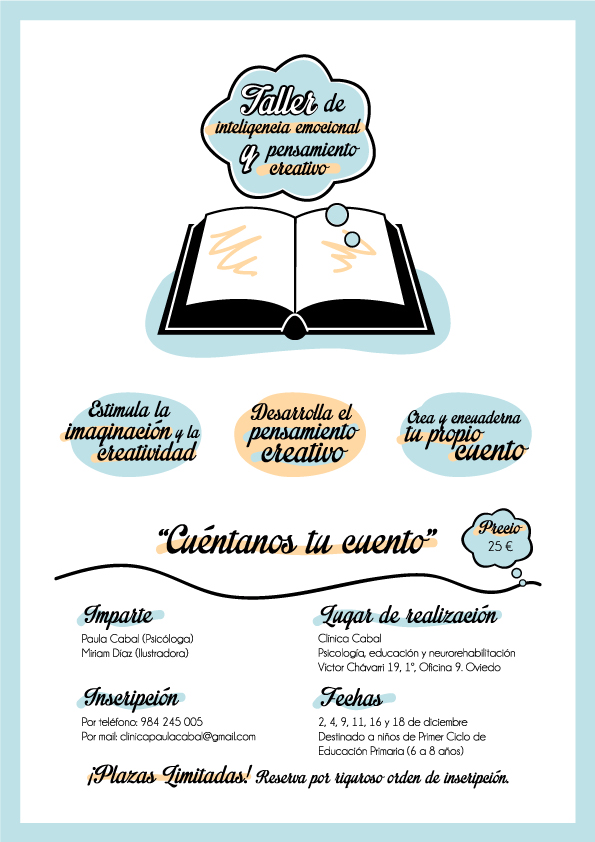 Taller de
inteligencia emocional
y pensamiento
creativo
Estimula la
imaginación y la
creatividad
Desarrolla el
pensamiento
creativo
Crea y encuaderna
tu propio
cuento
“Cuéntanos tu cuento”
Precio
25 €
Imparte
Paula Cabal (Psicóloga)
Miriam Díaz (Ilustradora)
Lugar de realización
Clínica Cabal
Psicología, educación y neurorehabilitación
Victor Chávarri 19, 1º, Oficina 9. Oviedo
Inscripción
Por teléfono: 984 245 005
Por mail: clinicapaulacabal@gmail.com
Fechas
2, 4, 9, 11, 16 y 18 de diciembre
Destinado a niños de Primer Ciclo de
Educación Primaria (6 a 8 años)
¡Plazas Limitadas! Reserva por riguroso orden de inscripción.